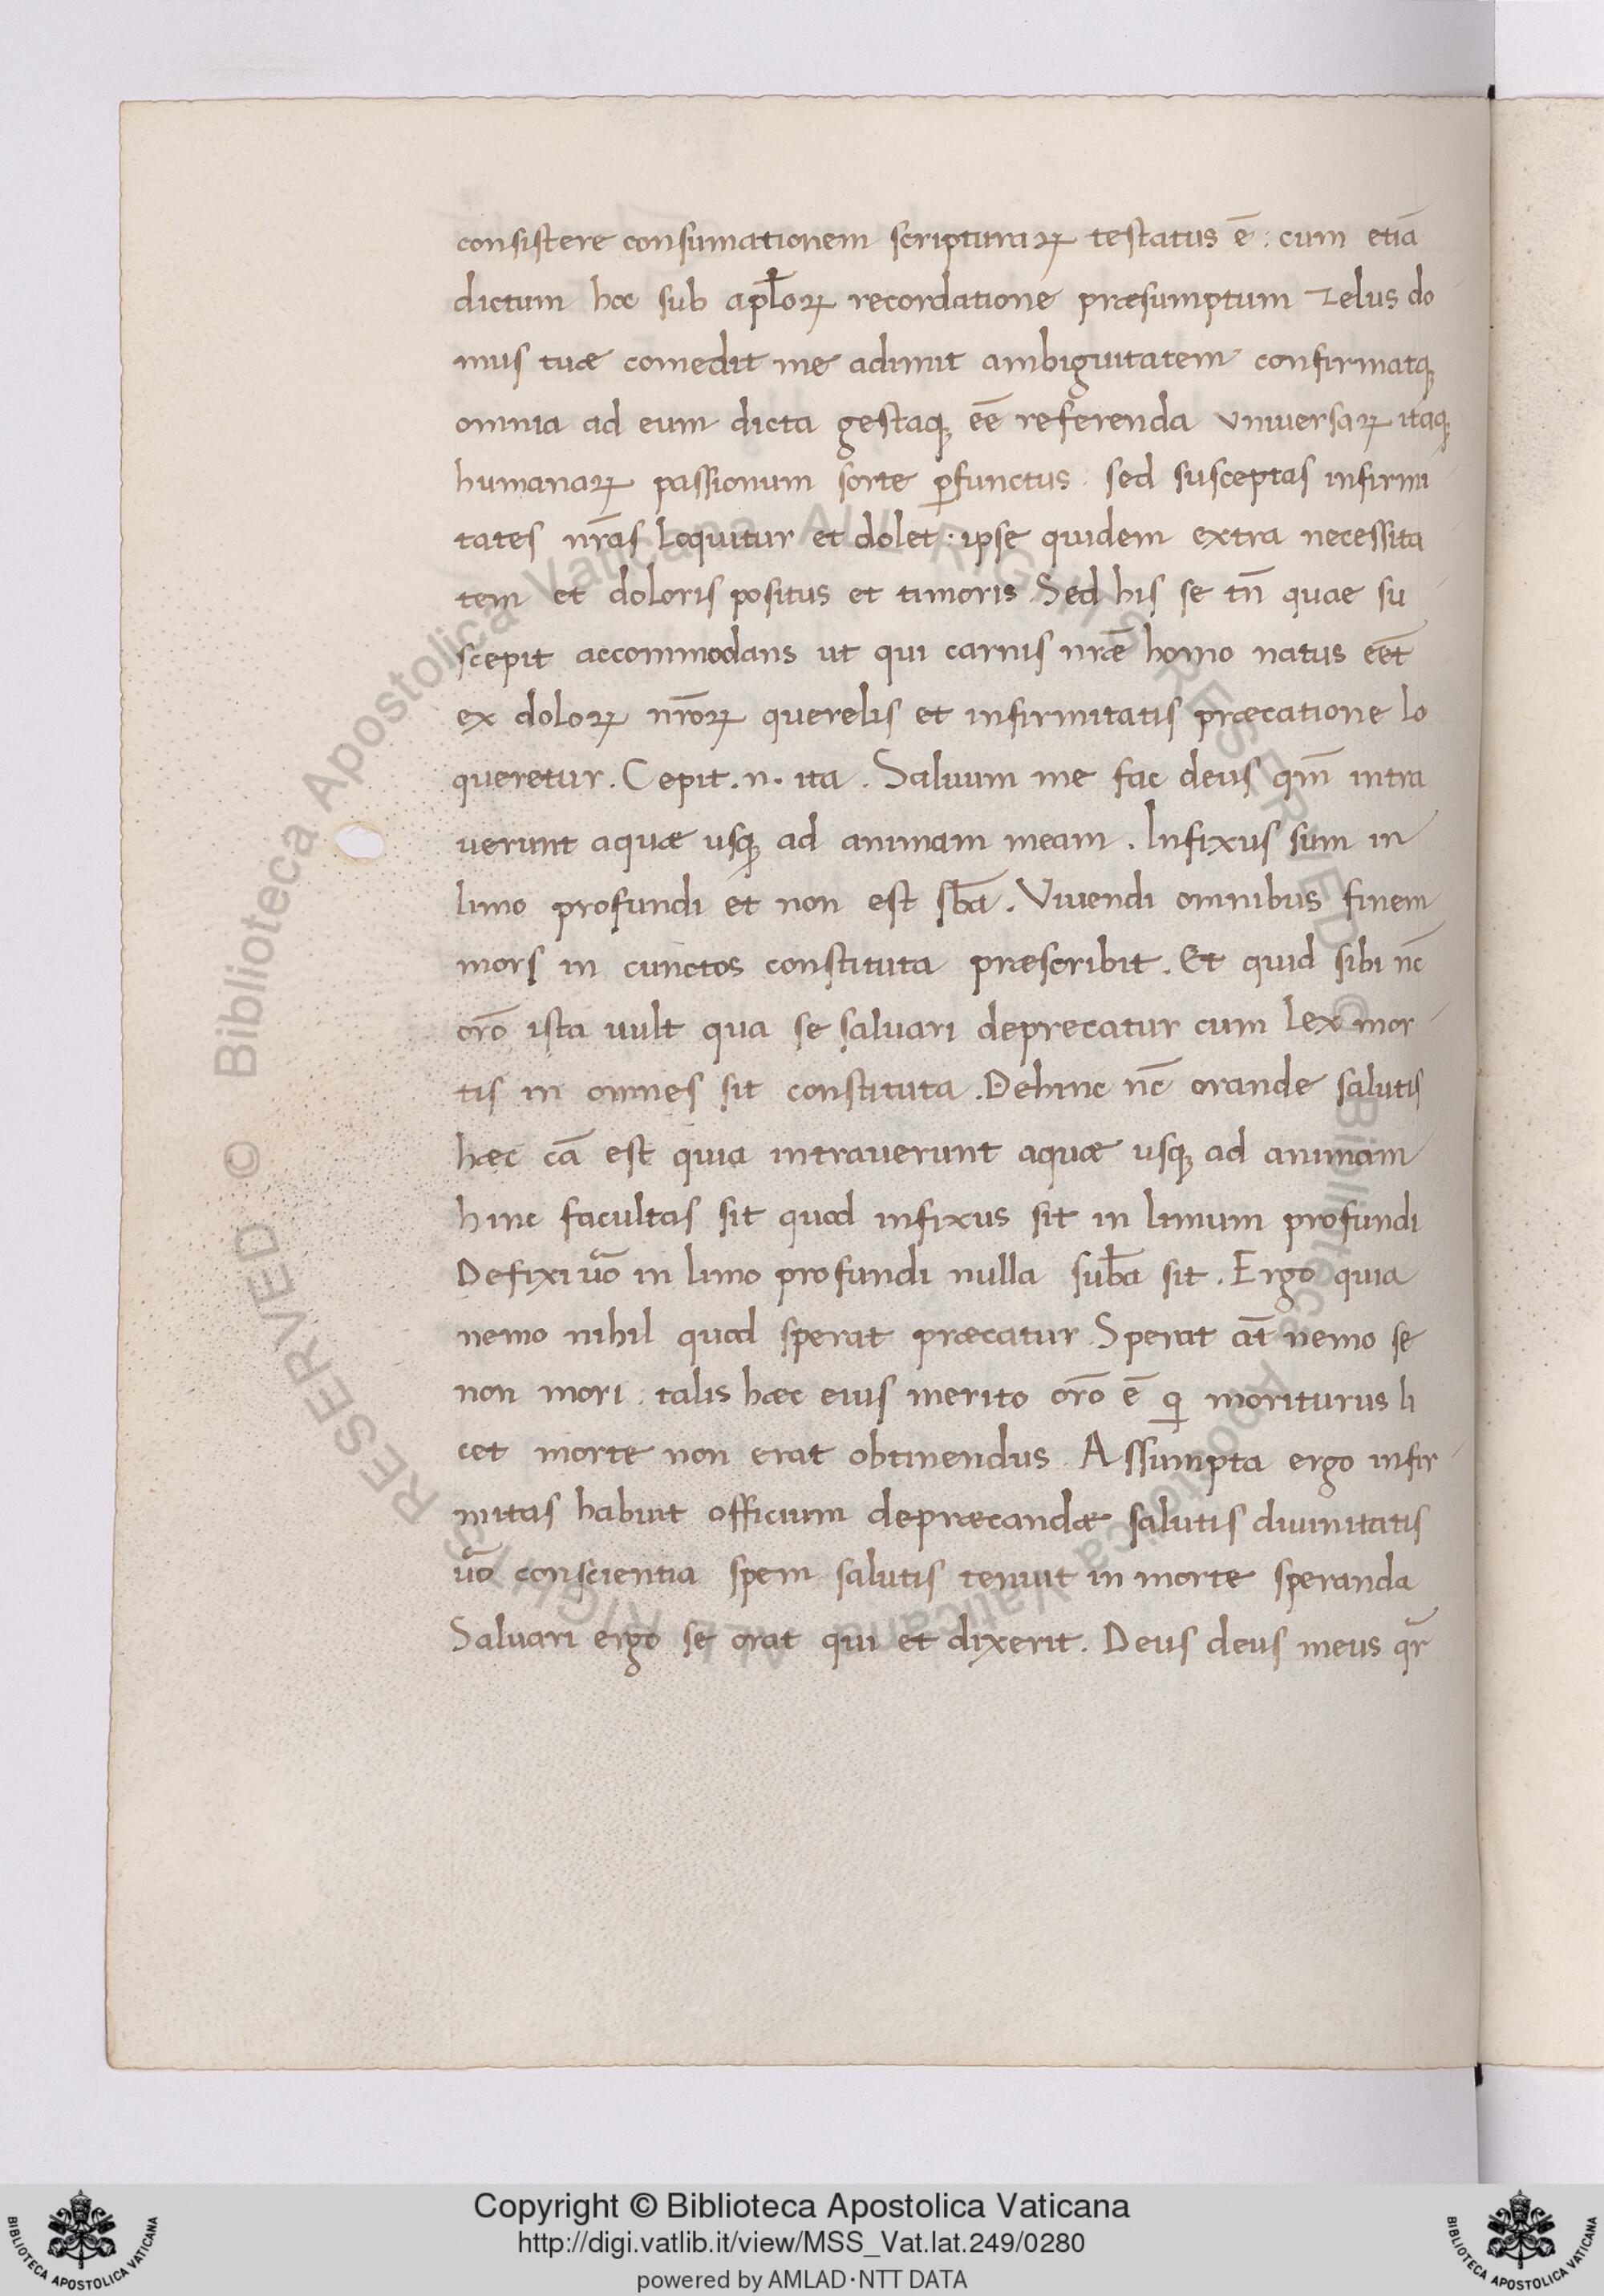 consistere consumationem scripturaꝝ testatus ē : cum etiā
dictum hoc sub apl̄oꝝ recordatione præsumptum zelus do
mus tuæ comedit me adimit ambiguitatem confirmatq;
omnia ad eum dicta gestaq; eē referenda vniuersaꝝ itaq;
humanaꝝ passionum sorte ꝑfunctus . sed susceptas infirmi
tates nr̄as loquitur et dolet . ipse quidem extra necessita
tem et doloris positus et timoris . Sed his se tn̄ quae su
scepit accommodans ut qui carnis nr̄æ homo natus eēt
ex doloꝝ nr̄oꝝ querelis et infirmitatis præcatione lo
queretur . Cepit . n . ita . Saluum me fac deus qm̄ intra
uerunt aquæ usq; ad animam meam . Infixus sum in
limo profundi et non est sb̄a . Viuendi omnibus finem
mors in cunctos constituta præscribit . Et quid sibi nc̄
or̄o ista uult qua se saluari deprecatur cum lex mor
tis in omnes sit constituta . Dehinc nc̄ orande salutis
hæc cā est quia intrauerunt aquæ usq; ad animam
hinc facultas sit quod infixus sit in limum profundi
Defixi uō in limo profundi nulla sub̄a sit . Ergo quia
nemo nihil quod sperat præcatur . Sperat āt nemo se
non mori . talis hæc euis merito or̄o ē qi moriturus li
cet morte non erat obtinendus . Assumpta ergo infir
mitas habuit officium depræcandæ salutis diuinitatis
uō conscientia spem salutis tenuit in morte speranda
Saluari ergo se orat qui et dixerit . Deus deus meus qr̄
Copyright © Biblioteca Apostolica Vaticana
http://digi.vatlib.it/view/MSS_Vat.lat.249/0280
powered by AMLAD·NTT DATA